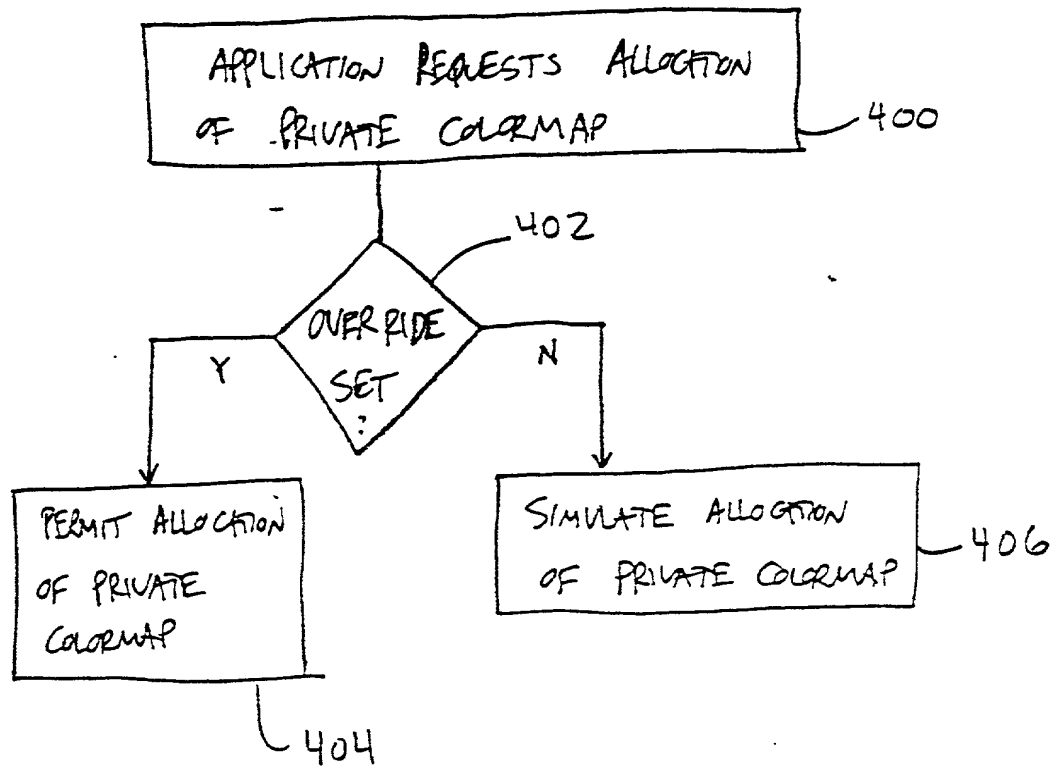 APPLICATION REQUESTS ALLOCATION
OF PRIVATE COLORMAP
400
402
OVERRIDE
SET
?
Y
N
PERMIT ALLOCATION
OF PRIVATE
COLORMAP
404
SIMULATE ALLOCATION
OF PRIVATE COLORMAP
406